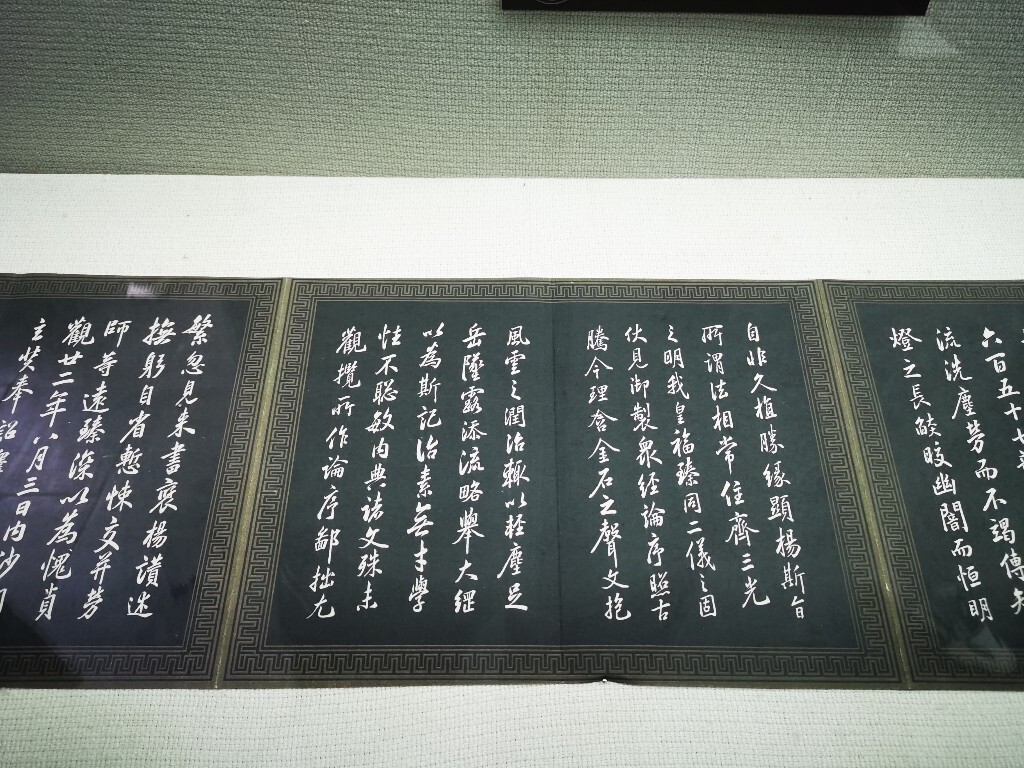 六百五十七
流洗塵勞而不竭傳智
燈之長燄皎幽闇而恒明
自非久植勝緣顯揚斯旨
所謂法相常住齊三光
之明我皇福臻同二儀之固
伏見御製衆經論序照古
騰今理含金石之聲文抱
風雲之潤治輒以輕塵足
岳墜露添流略舉大綱
以為斯記治素無才學
性不聰敏內典諸文殊未
觀攬所作論序鄙拙尤
繁忽見來書褒揚讚述
撫躬自省慙悚交并勞
師等遠臻深以為愧貞
觀廿二年八月三日內